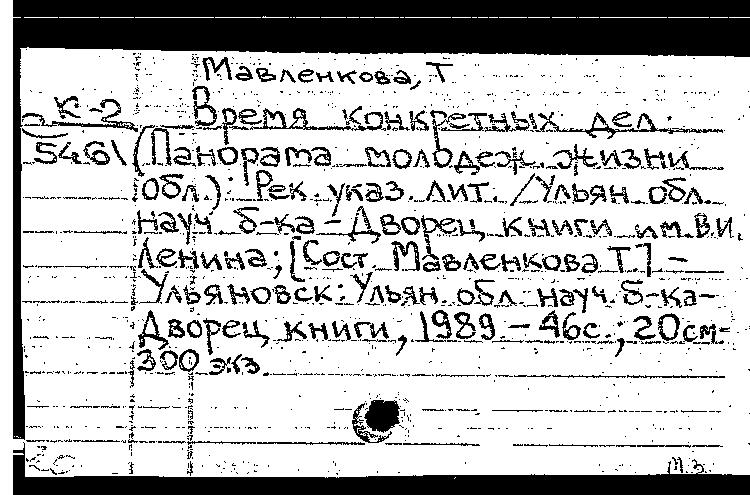 Мавленкова, Т
К-2 Время конкретных дел:
5461 (Панорама молодеж. жизни
обл.): Рек. указ. лит. /Ульян. обл.
науч. б-ка - Дворец книги им. В.И.
Ленина; [Сост. Мавленкова Т.] -
Ульяновск: Ульян. обл. науч. б-ка-
Дворец книги, 1989. - 46с.; 20см-
300 экз.
М.З.